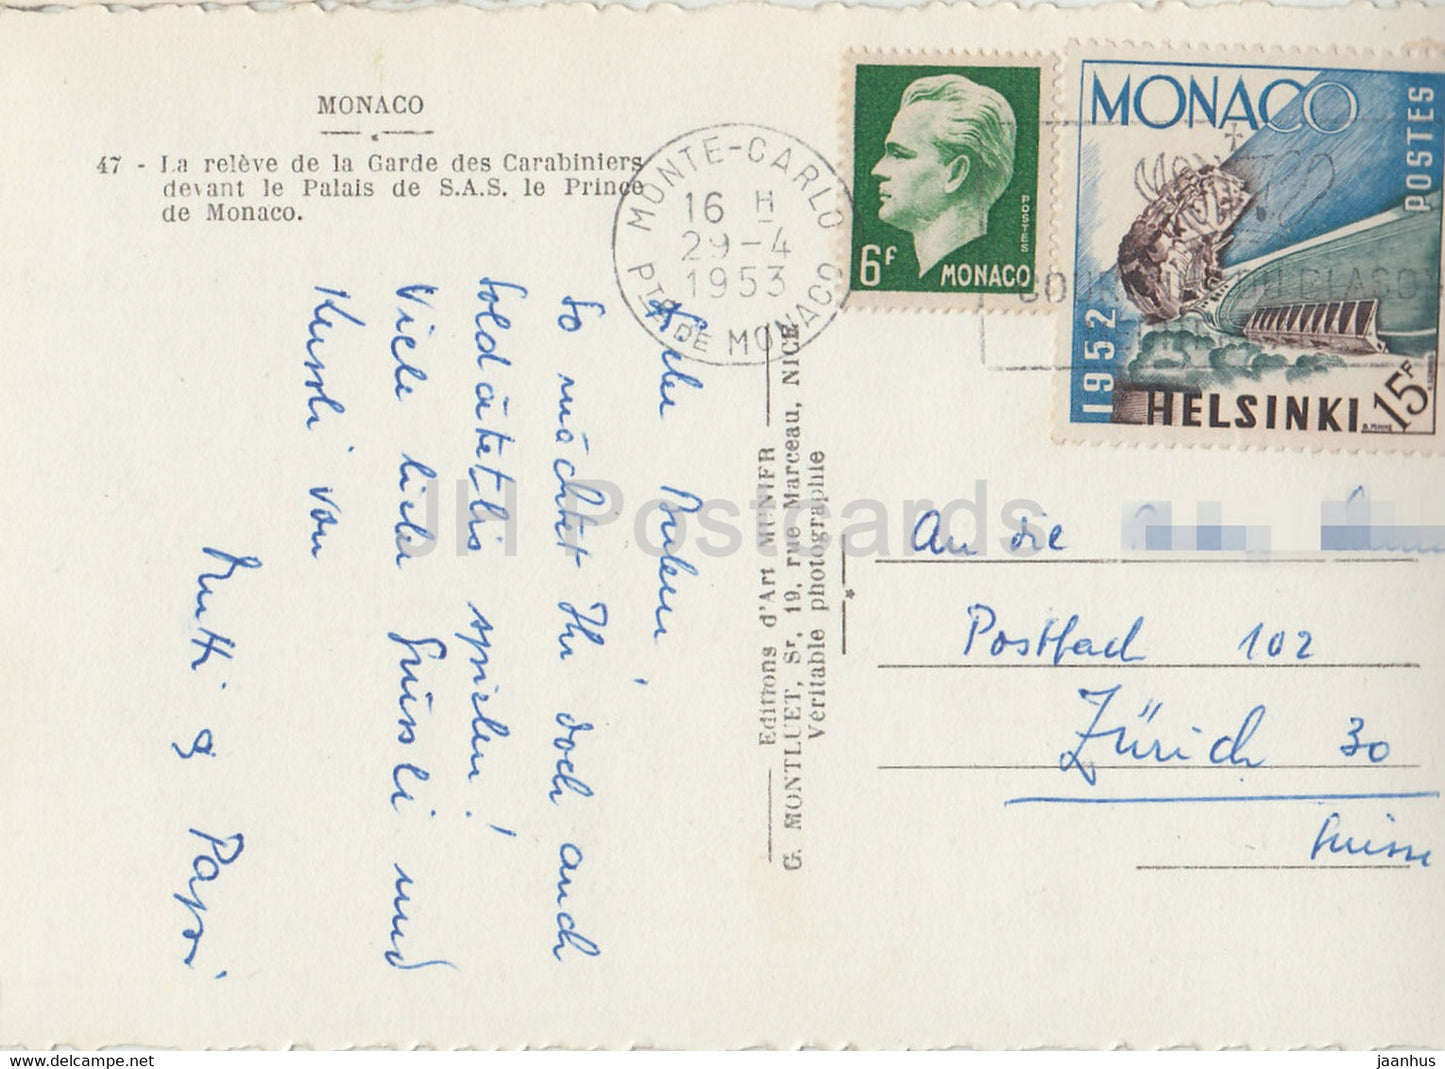 MONACO
47 - La relève de la Garde des Carabiniers
devant le Palais de S.A.S. le Prince
de Monaco.
MONTE-CARLO
16 H
29-4
1953
Pté DE MONACO
POSTES
6F
MONACO
MONACO
POSTES
1952
HELSINKI
15F
Liebe
So möchtet Ihr doch auch
Soldätelis spielen!
Viele liebe Grüssli und
Küssli von
Mutti & Papi
Editions d'Art MUNIER
G. MONTLUET, Sr, 19, rue Marceau, NICE
Véritable photographie
JH Postcards
An die
Postfach 102
Zürich 30
Suisse
www.delcampe.net
jaanhus